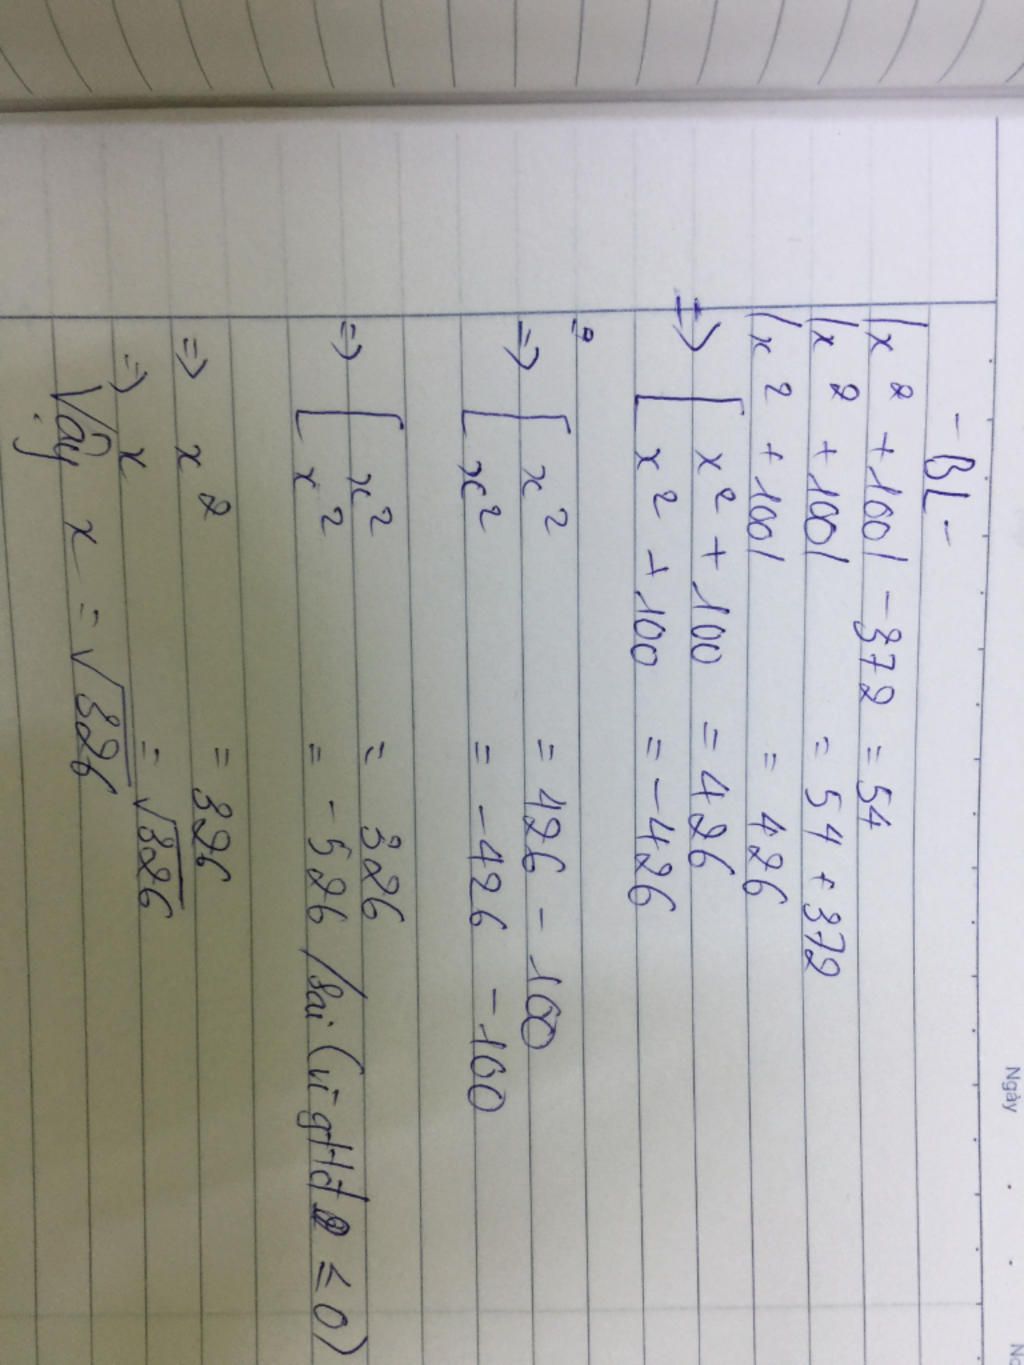 Ngày
- BL -
|x² + 100| - 372 = 54
|x² + 100| = 54 + 372
|x² + 100| = 426
=> [ x² + 100 = 426
[ x² + 100 = -426
=> [ x² = 426 - 100
[ x² = -426 - 100
=> [ x² = 326
[ x² = -526 / sai (vì gttđ ≤ 0)
=> x² = 326
=> x = √326
Vậy x = √326